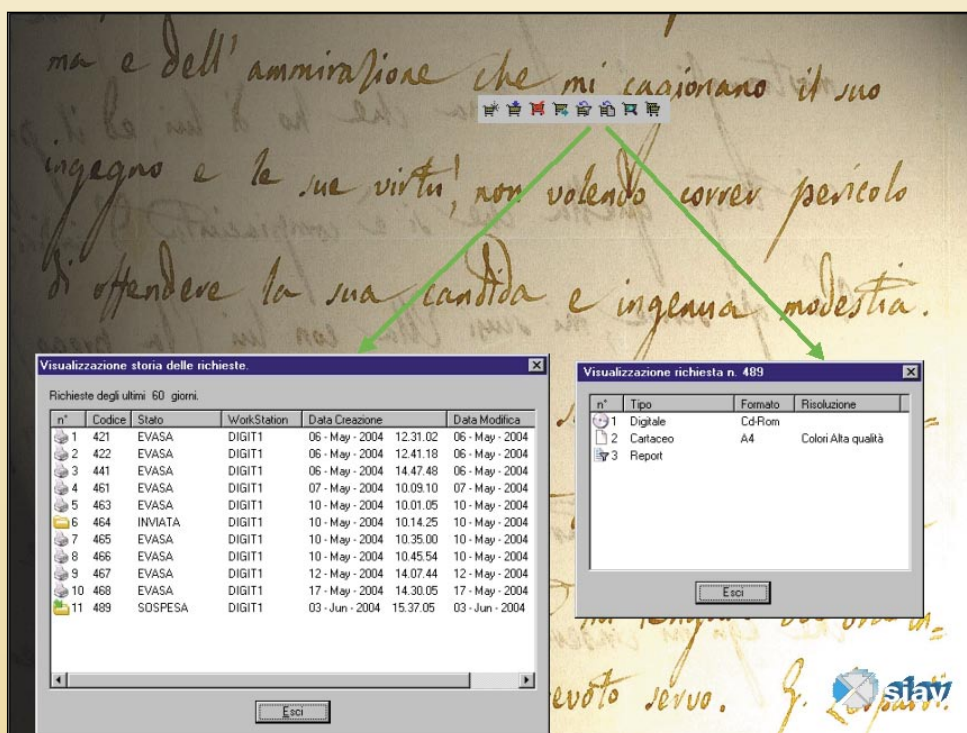 ma e dell' ammirazione che mi cagionano il suo
ingegno e le sue virtù, non volendo correr pericolo
di offendere la sua candida e ingenua modestia.
Visualizzazione storia delle richieste.
Richieste degli ultimi 60 giorni.
n° Codice Stato WorkStation Data Creazione Data Modifica
1 421 EVASA DIGIT1 06 - May - 2004 12.31.02 06 - May - 2004
2 422 EVASA DIGIT1 06 - May - 2004 12.41.18 06 - May - 2004
3 441 EVASA DIGIT1 06 - May - 2004 14.47.48 06 - May - 2004
4 461 EVASA DIGIT1 07 - May - 2004 10.09.10 07 - May - 2004
5 463 EVASA DIGIT1 10 - May - 2004 10.01.05 10 - May - 2004
6 464 INVIATA DIGIT1 10 - May - 2004 10.14.25 10 - May - 2004
7 465 EVASA DIGIT1 10 - May - 2004 10.35.00 10 - May - 2004
8 466 EVASA DIGIT1 10 - May - 2004 10.45.54 10 - May - 2004
9 467 EVASA DIGIT1 12 - May - 2004 14.07.44 12 - May - 2004
10 468 EVASA DIGIT1 17 - May - 2004 14.30.05 17 - May - 2004
11 489 SOSPESA DIGIT1 03 - Jun - 2004 15.37.05 03 - Jun - 2004
Esci
Visualizzazione richiesta n. 489
n° Tipo Formato Risoluzione
1 Digitale Cd-Rom
2 Cartaceo A4 Colori Alta qualità
3 Report
Esci
evoto servo. G.
siav